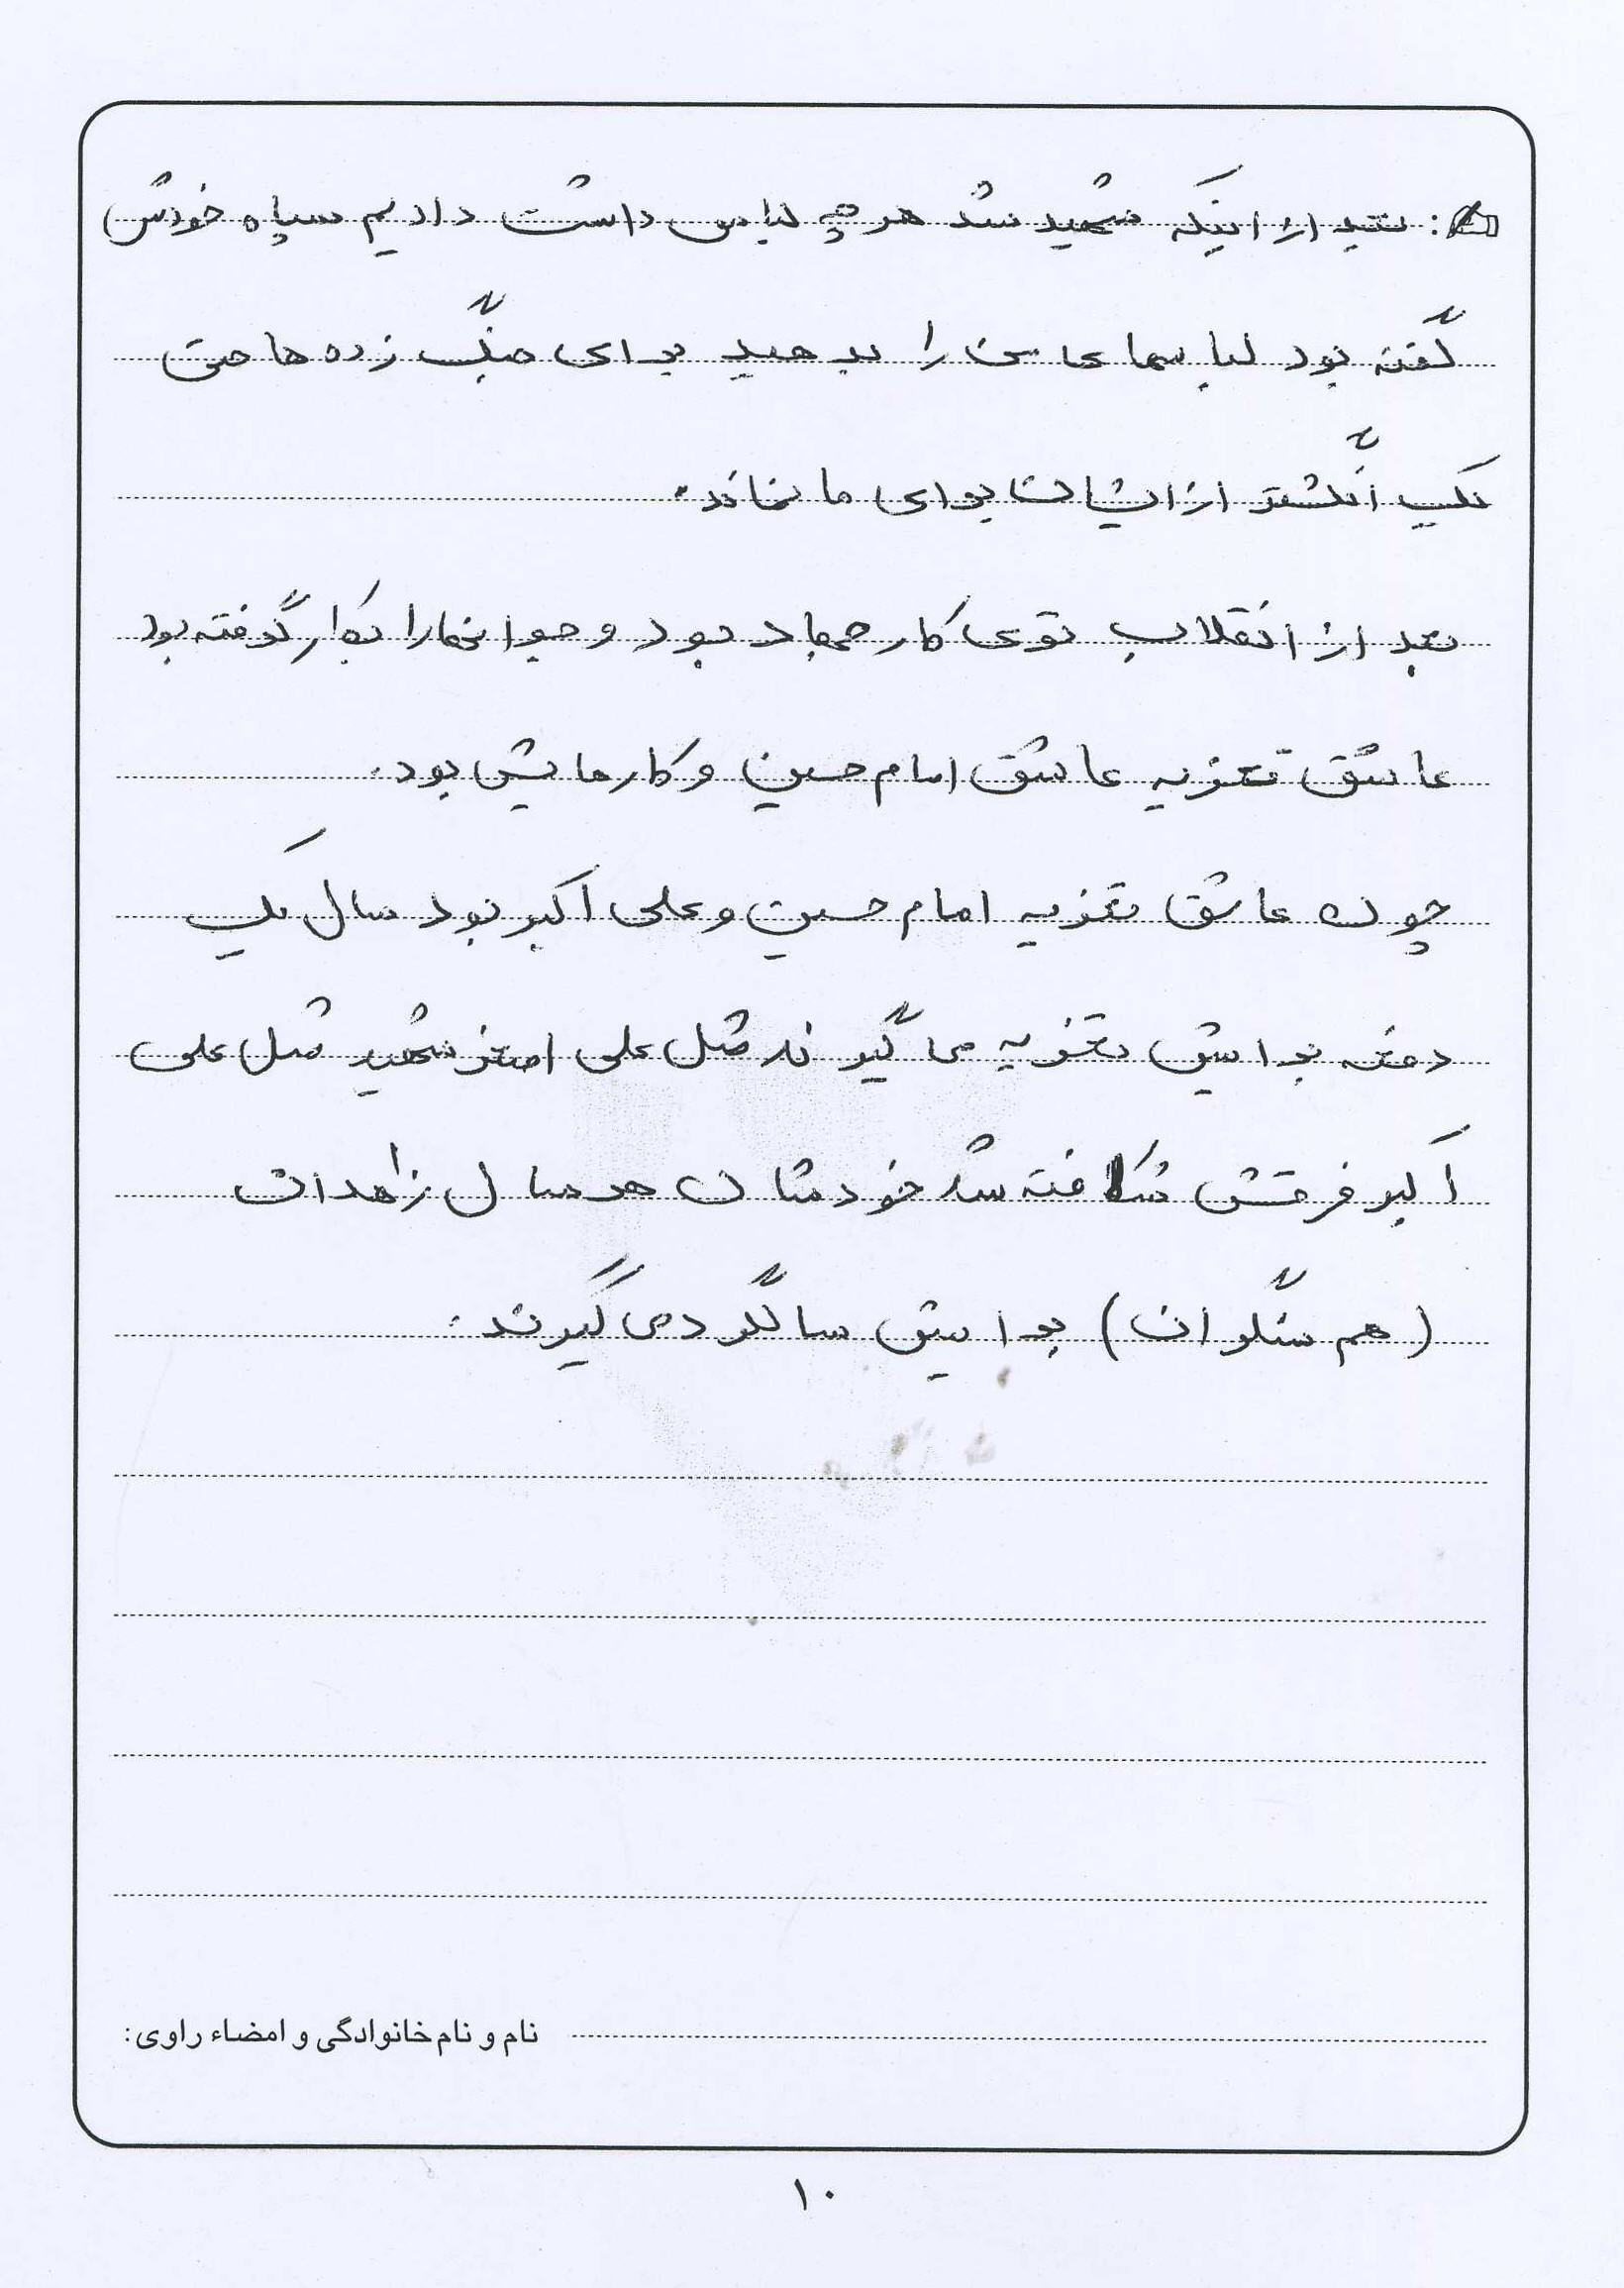 بعد از اینکه شهید شد هر چه لباس داشت دادیم سپاه خودش
گفته بود لباسهای من را بدهید برای جنگ زده ها حتی
یک انگشتر از ایشان برای ما نماند.
بعد از انقلاب توی کار جهاد بود و جوانها را بکار گرفته بود
عاشق تعزیه عاشق امام حسین و کارهایش بود.
چون عاشق تعزیه امام حسین و علی اکبر بود سال یک
دفعه برایش تعزیه می گیرند مثل علی اصغر شهید مثل علی
اکبر فرقش شکافته شد خودشان هر سال زاهدان
(هم سنگران) برایش سالگرد می گیرند.
نام و نام خانوادگی و امضاء راوی:
۱۰